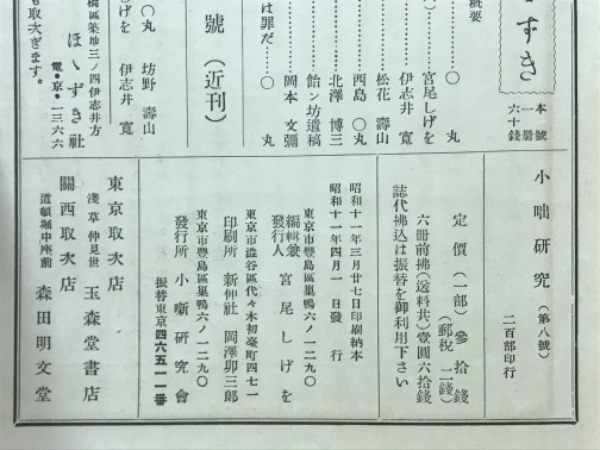 ずき
本號
一册
六十錢
概要
…………〇丸
宮尾しげを
伊志井寬
松花壽山
西島〇丸
北澤博三
飴ン坊遺稿
岡本文彌
は罪だ……〇丸
號（近刊）
〇丸 坊野壽山
げを 伊志井寬
橋區築地三ノ四伊志井方
ほゝずき社
電・京・一三六六
も取次ぎます。
小咄硏究（第八號）
二百部印行
定價（一部）參拾錢
（郵稅二錢）
六冊前拂（送料共）壹圓六拾錢
誌代拂込は振替を御利用下さい
昭和十一年三月廿七日印刷納本
昭和十一年四月一日發行
東京市豐島區巢鴨六ノ一二九〇
編輯兼
發行人 宮尾しげを
東京市澁谷區代々木初臺町四七一
印刷所 新伸社 岡澤卯三郞
東京市豐島區巢鴨六ノ一二九〇
發行所 小噺硏究會
振替東京四六五一一番
東京取次店
淺草仲見世 玉森堂書店
關西取次店
道頓堀中座前 森田明文堂